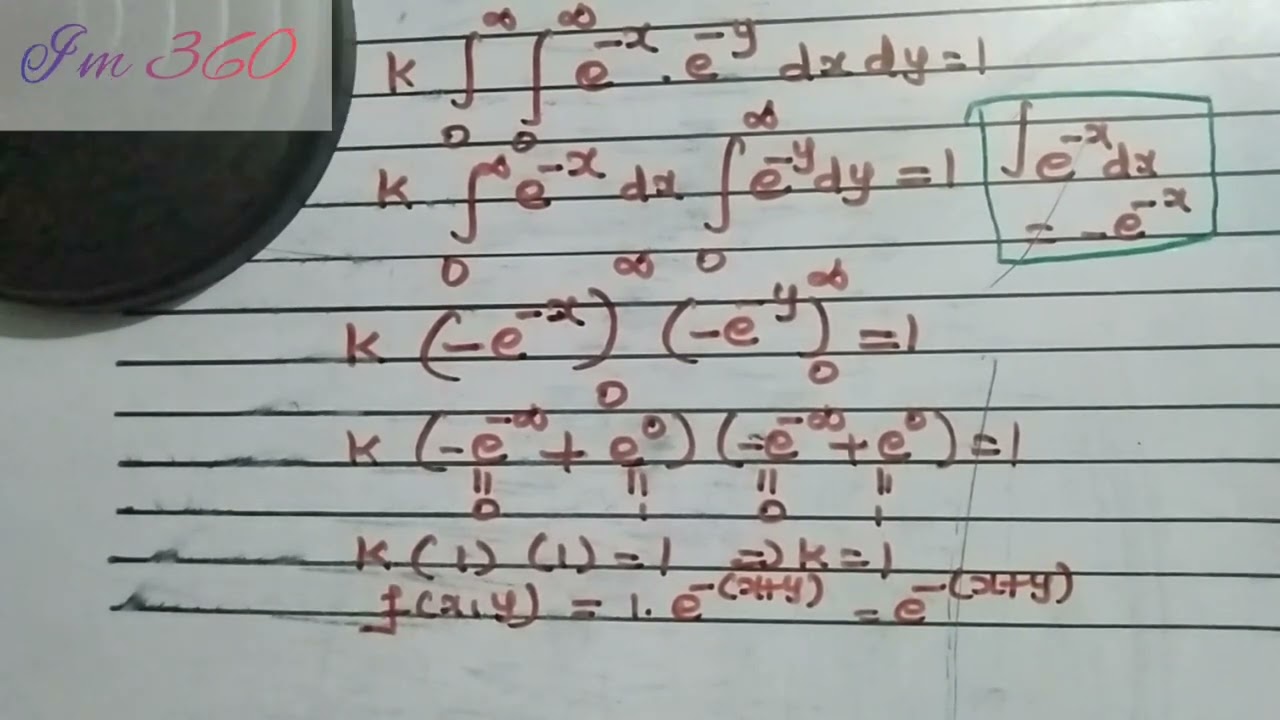 Im 360
k ∫₀^∞ ∫₀^∞ e^-x . e^-y dx dy = 1
k ∫₀^∞ e^-x dx ∫₀^∞ e^-y dy = 1
∫ e^-x dx
= -e^-x
k (-e^-x)₀^∞ (-e^-y)₀^∞ = 1
k (-e^-∞ + e^0) (-e^-∞ + e^0) = 1
|| || || ||
0 1 0 1
k (1) (1) = 1 => k = 1
f(x,y) = 1. e^-(x+y) = e^-(x+y)